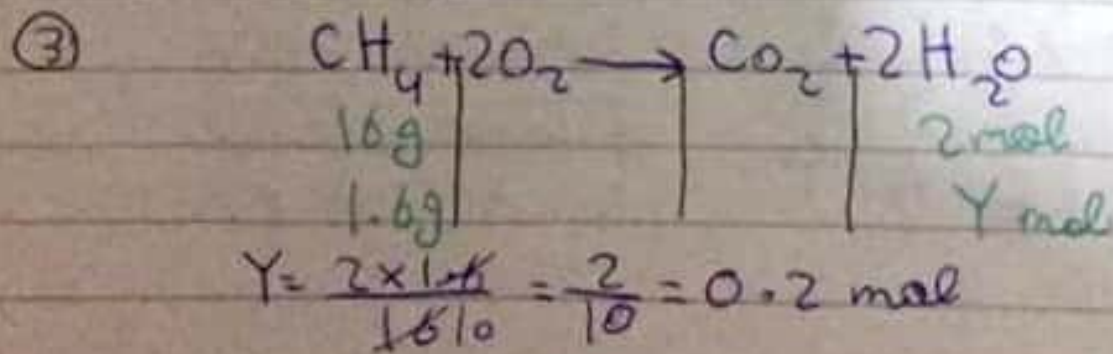 ③ CH₄ + 2O₂ → CO₂ + 2H₂O
16g 2mol
1.6g Y mol
Y = 2×1.6 / 16 10 = 2/10 = 0.2 mol